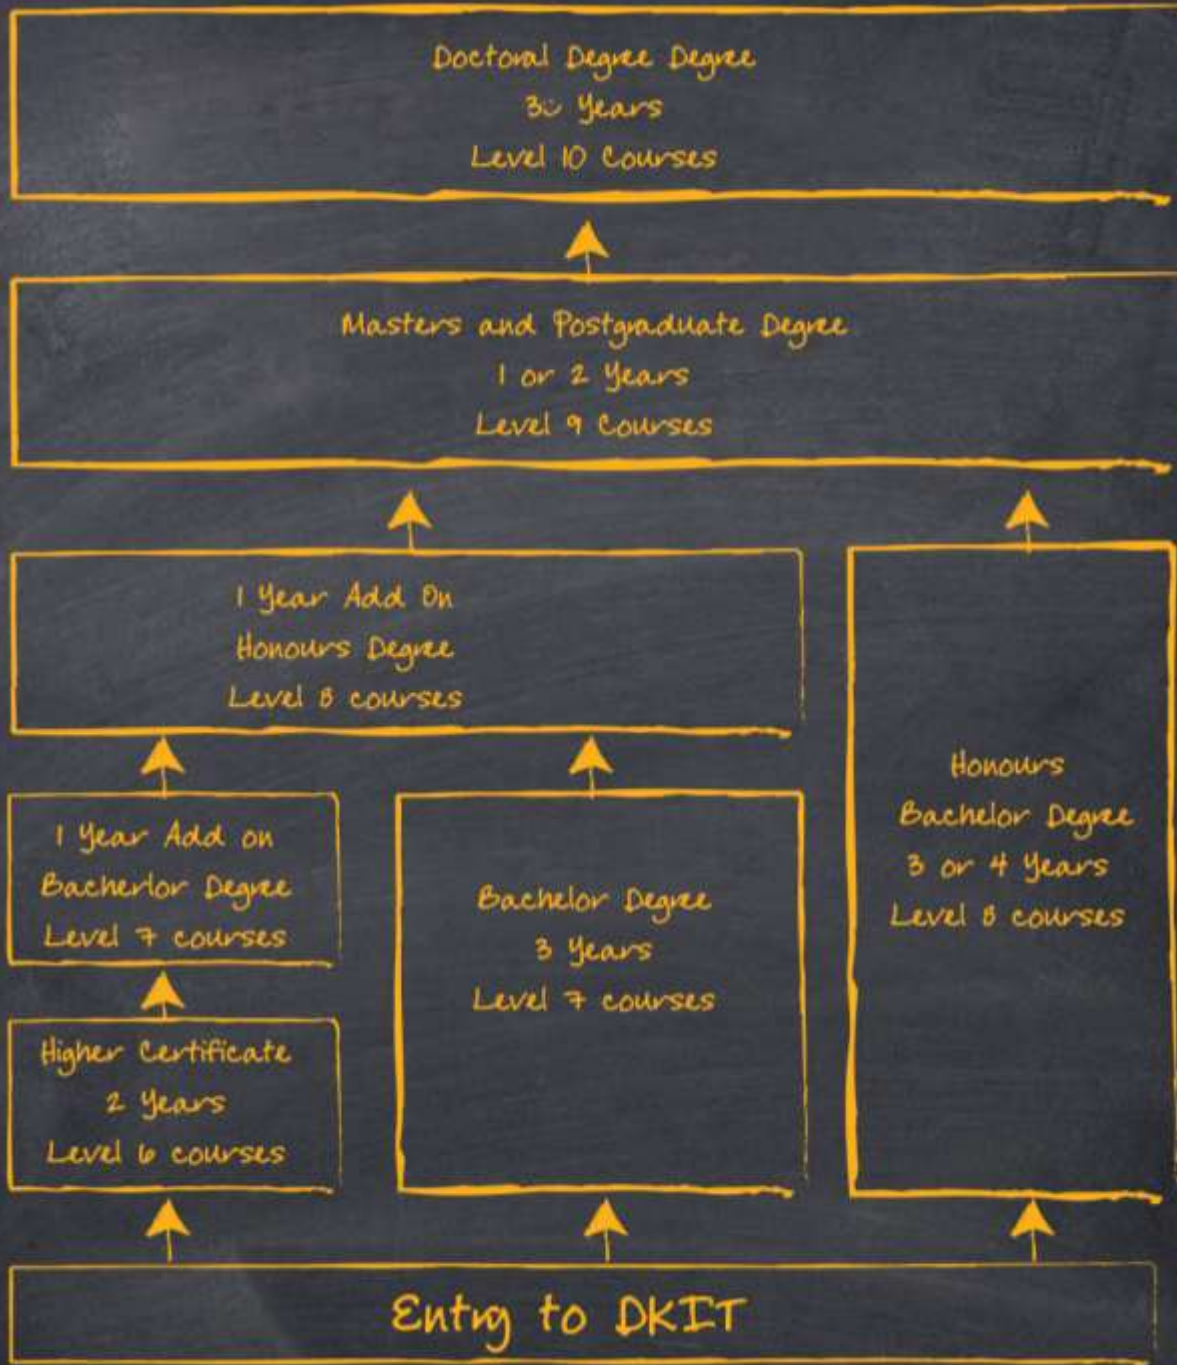 Doctoral Degree Degree
Years
Level 10 Courses
Masters and Postgraduate Degree
1 or 2 Years
Level 9 Courses
1 Year Add On
Honours Degree
Level 8 courses
1 Year Add on
Bacherlor Degree
Level 7 courses
Higher Certificate
2 Years
Level 6 courses
Bachelor Degree
3 Years
Level 7 courses
Honours
Bachelor Degree
3 or 4 Years
Level 8 courses
Entry to DKIT